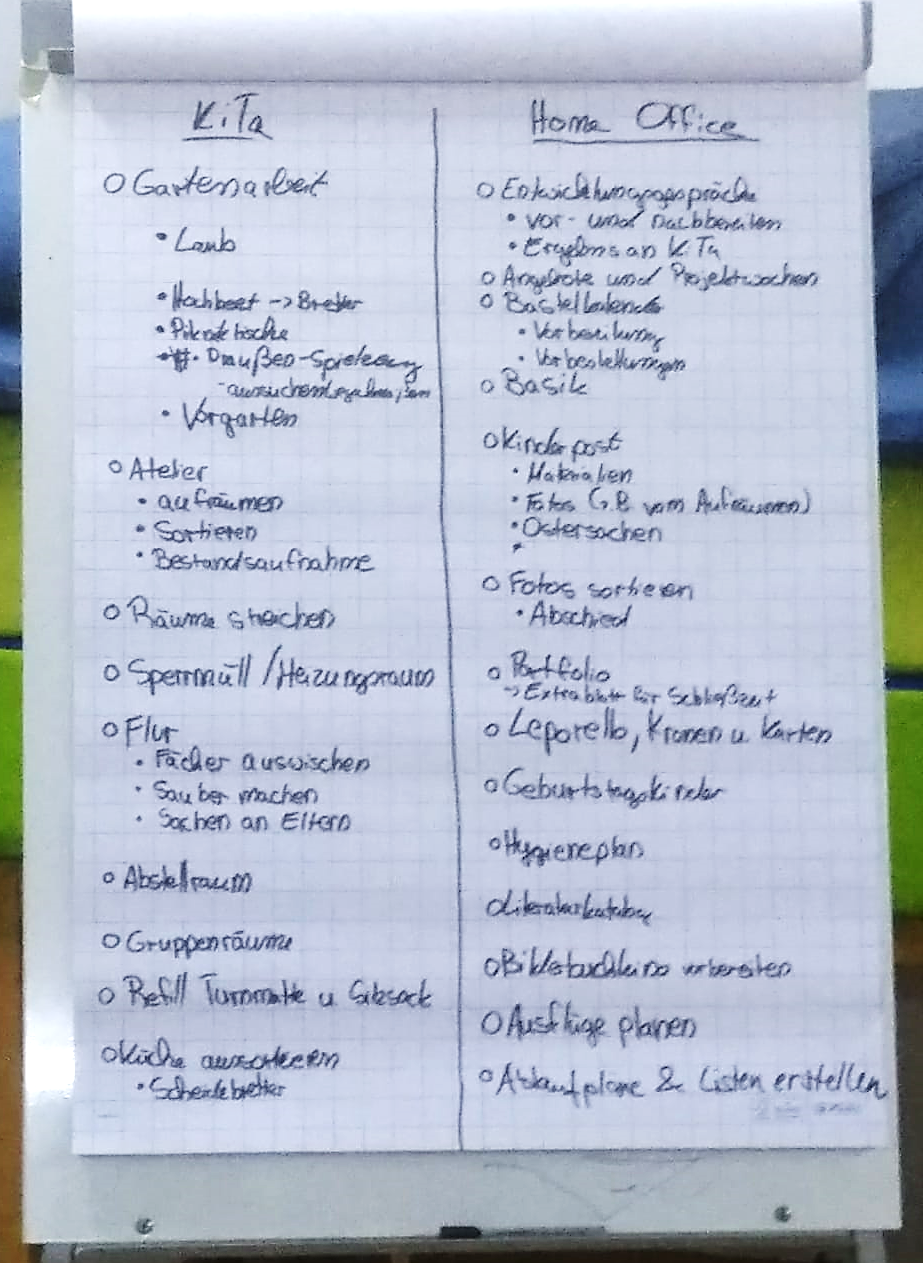 KiTa
O Gartenarbeit
• Laub
• Hochbeet -> Bretter
•
• Draußen-Spielzeug
- aussuchen
• Vorgarten
O Atelier
• aufräumen
• Sortieren
• Bestandsaufnahme
O Räume streichen
O Sperrmüll / Heizungsraum
O Flur
• Fächer auswischen
• Sauber machen
• Sachen an Eltern
O Abstellraum
O Gruppenräume
O Refill Turnmatte u Sitzsack
O Küche aussortieren
• Schneidebretter
Home Office
O Entwicklungsgespräche
• vor- und nachbereiten
• Ergebnis an KiTa
O Angebote und Projektwochen
O
• Vorbereitung
•
O Basik
O Kinderpost
• Materialien
• Fotos (z.B vom Aufräumen)
• Ostersachen
•
O Fotos sortieren
• Abschied
O Portfolio
-> Extrablatt für Schließzeit
O Leporello, Kronen u Karten
O Geburtstagskinder
O Hygieneplan
O Literaturkatalog
O Bilderbuchkino vorbereiten
O Ausflüge planen
O Ablaufpläne & Listen erstellen